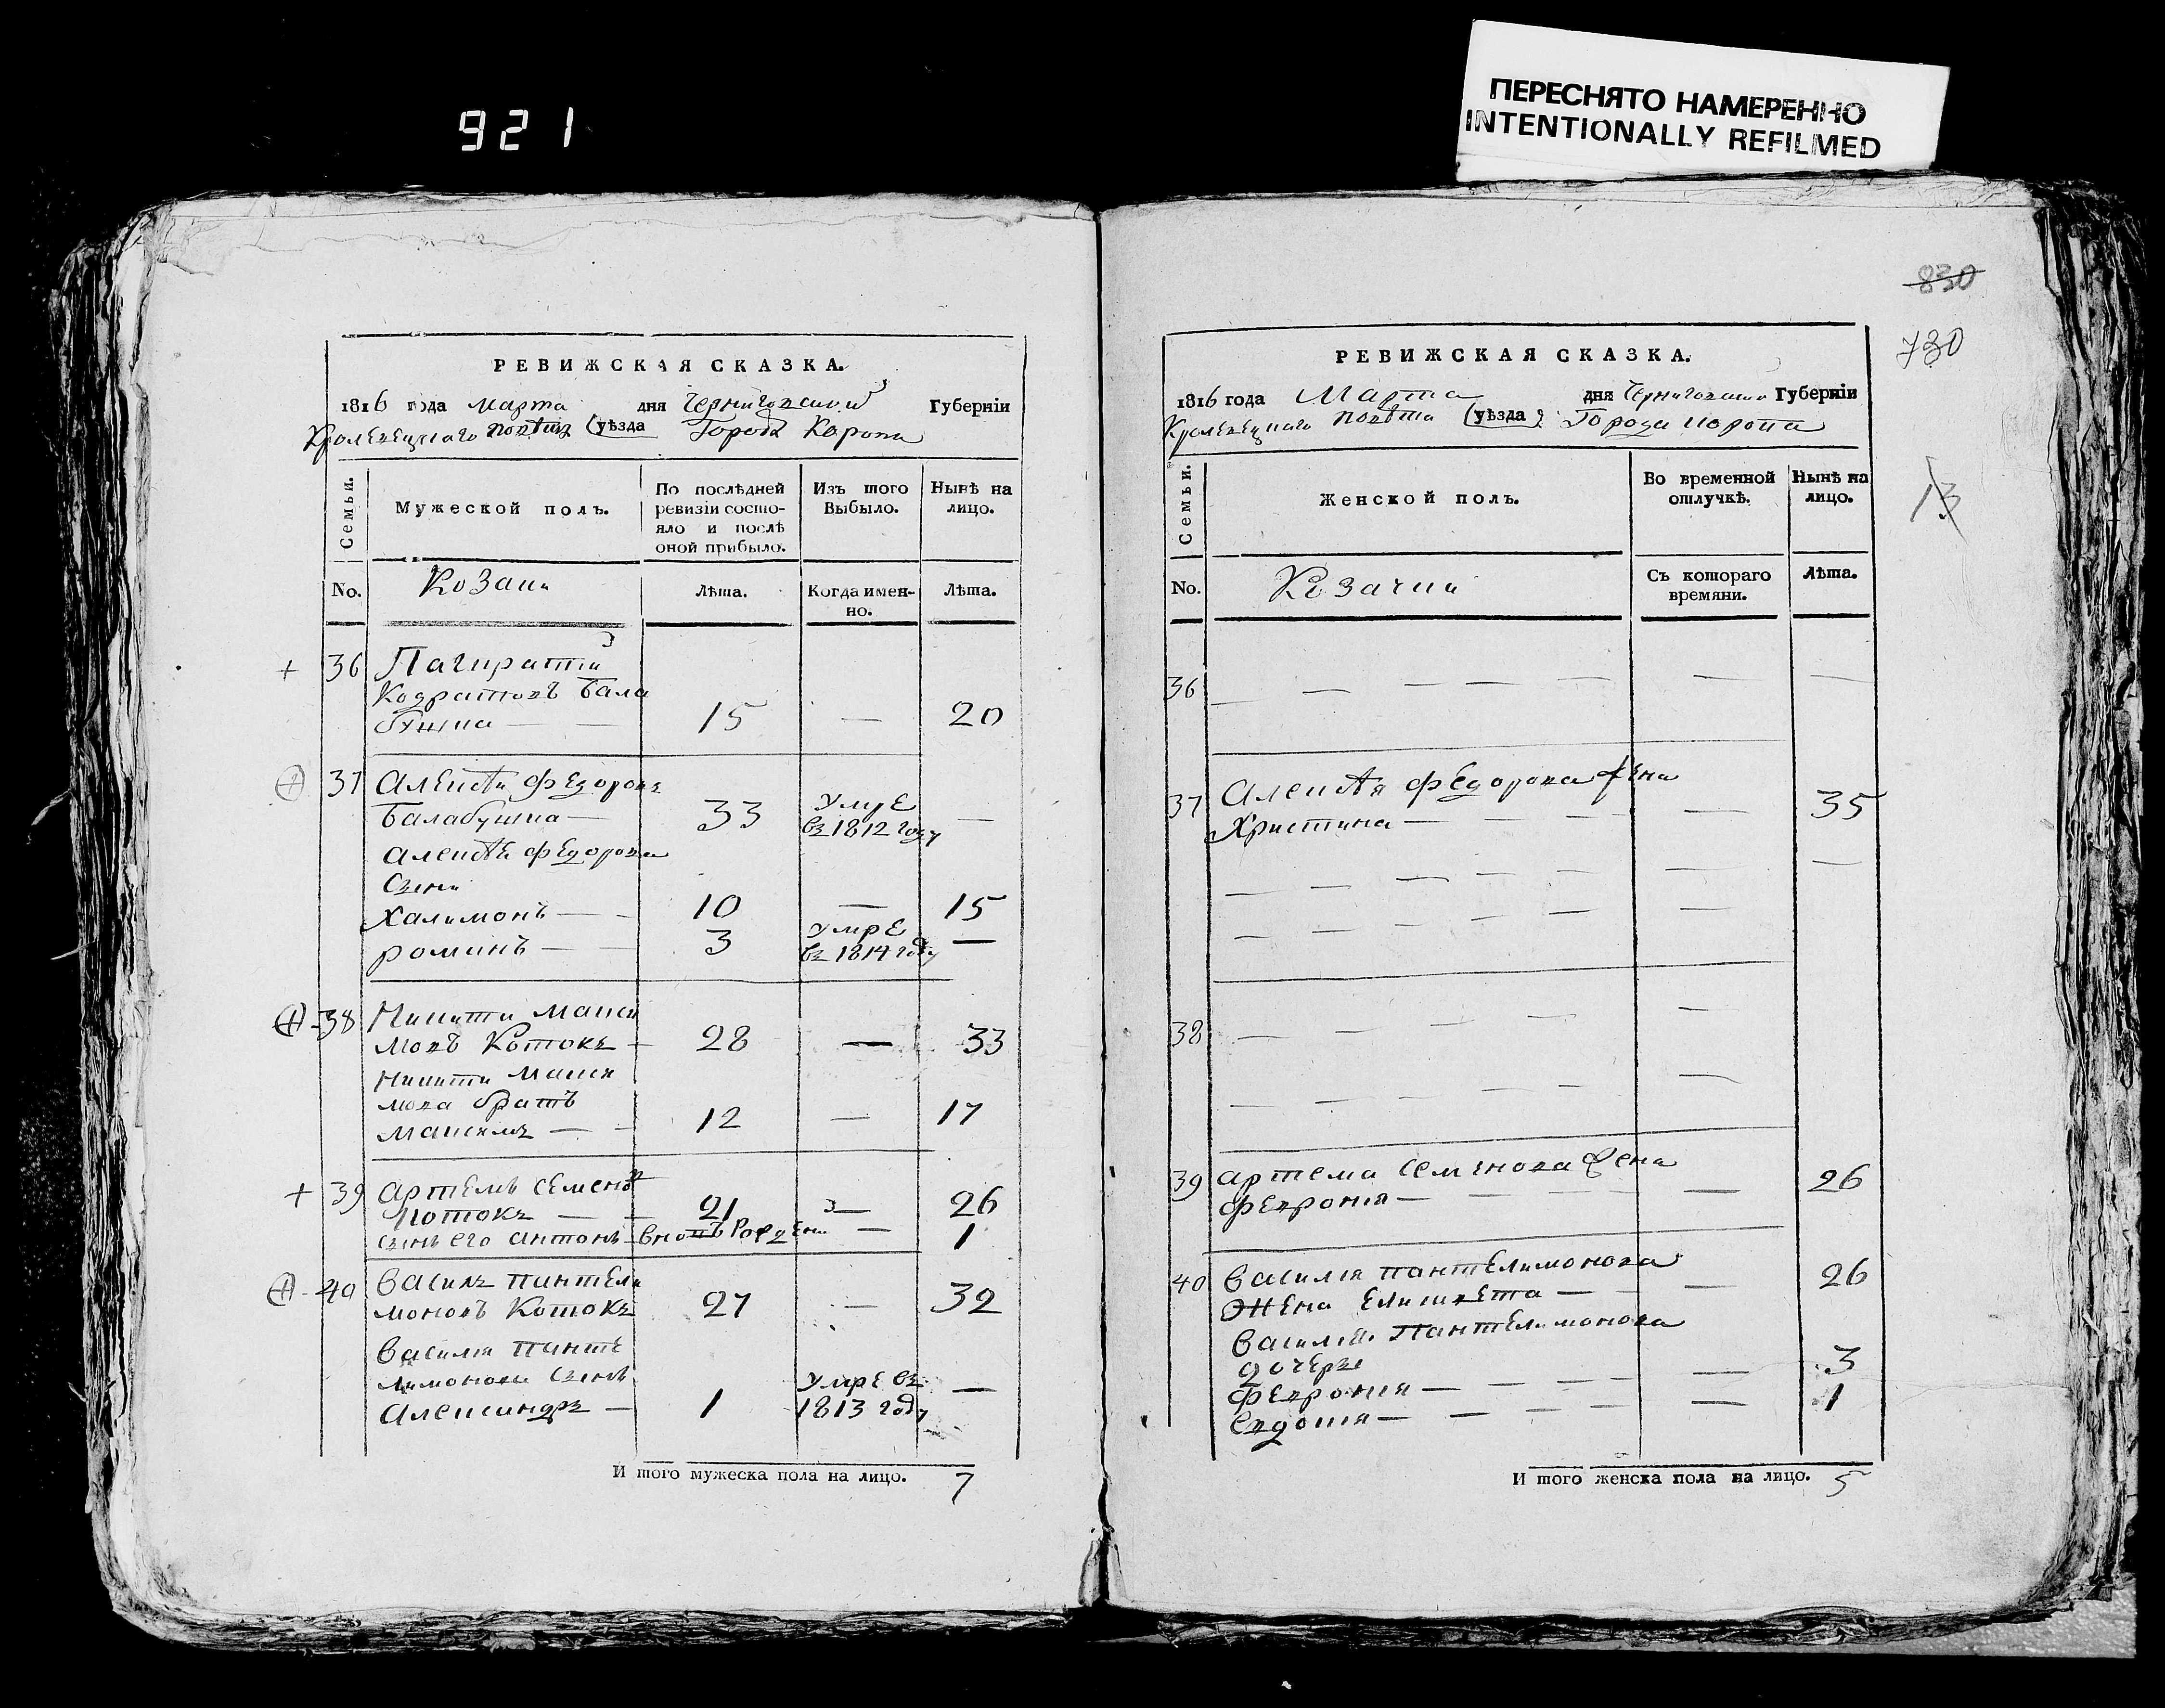 921
ПЕРЕСНЯТО НАМЕРЕННО
INTENTIONALLY REFILMED
РЕВИЖСКАЯ СКАЗКА.
1816 года Марта дня Черниговской Губерніи
Кролевецкаго повѣта (уѣзда) Города Коропа
Семьи.
Мужеской полъ.
По послѣдней ревизіи состо-
яло и послѣ
оной прибыло.
Изъ того
Выбыло.
Нынѣ на
лицо.
No.
Козаки
Лѣта.
Когда имен-
но.
Лѣта.
36 Панкратій
Кодратовъ Бала
бушка — — 15 — 20
37 Алексѣй Федоровъ
Балабушка — 33 умре въ 1812 году —
Алексѣя Федорова
сыны
Халимонъ — — 10 — 15
Романъ — — 3 умре въ 1814 году —
38 Никита Макси
мовъ Котокъ — 28 — 33
Никиты Макси
мова братъ
Максимъ — — 12 — 17
39 Артемъ Семеновъ
Котокъ — — 21 — 26
сынъ его Антонъ вновь рожденъ — 1
40 Василь Пантели
моновъ Котокъ 27 — 32
Василія Панте
лимонова сынъ
Александръ — 1 умре въ 1813 году —
И того мужеска пола на лицо. 7
830
730
13
РЕВИЖСКАЯ СКАЗКА.
1816 года Марта дня Черниговской Губерніи
Кролевецкаго повѣта (уѣзда) Города Коропа
Семьи.
Женской полъ.
Во временной
отлучкѣ.
Нынѣ на
лицо.
No.
Козачки
Съ котораго
времяни.
Лѣта.
36 — — — — — — —
37 Алексѣя Федорова жена
Христина — — — — — 35
38 — — — — — —
39 Артема Семенова жена
Феврония — — — — 26
40 Василія Пантелимонова
жена Елисавета — — 26
Василія Пантелимонова
дочери
Феврония — — — — — 3
Евдокия — — — — — 1
И того женска пола на лицо. 5